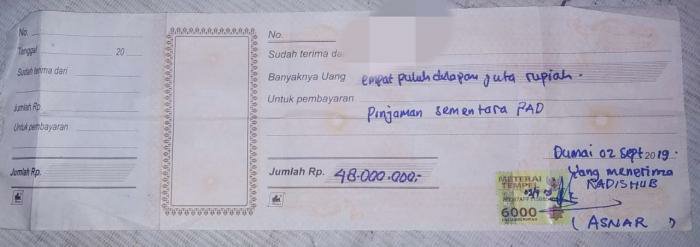 No.
Tanggal 20
Sudah terima dari
Jumlah Rp.
Untuk pembayaran
Jumlah Rp.
No.
Sudah terima da
Banyaknya Uang empat puluh delapan juta rupiah.
Untuk pembayaran Pinjaman sementara PAD
Dumai 02 Sept 2019.
Yang menerima
KADISHUB
Jumlah Rp. 48.000.000,-
METERAI
TEMPEL
6000
( ASNAR )